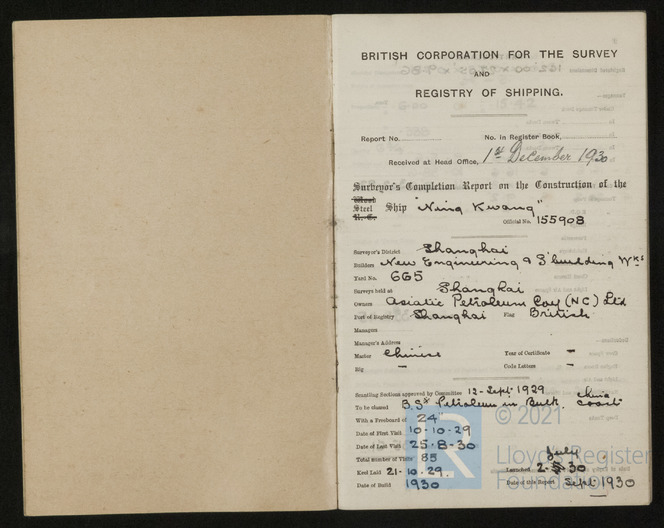 BRITISH CORPORATION FOR THE SURVEY
AND
REGISTRY OF SHIPPING.
Report No.
No. in Register Book,
Received at Head Office, 1st December 1930
Surveyor's Completion Report on the Construction of the
Wood
Steel Ship "Ning Kwang"
Official No. 155908
Surveyor's District Shanghai
Builders New Engineering & S'building Wks
Yard No. 665
Surveys held at Shanghai
Owners Asiatic Petroleum Coy (NC) Ltd
Port of Registry Shanghai Flag British
Managers
Manager's Address
Master Chinese Year of Certificate -
Rig - Code Letters -
Scantling Sections approved by Committee 12-Sept-1929
To be classed B.S* Petroleum in Bulk. China Coast
With a Freeboard of 24"
Date of First Visit 10-10-29
Date of Last Visit 25-8-30
Total number of Visits 85
Keel Laid 21-10-29. Launched 2-July 30
Date of Build 1930 Date of this Report Sept 1930
© 2021
Lloyd's Register
Foundation
LR